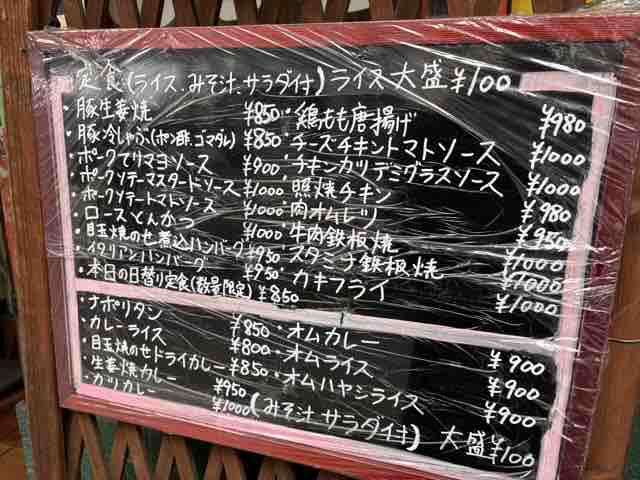 定食(ライス、みそ汁、サラダ付) ライス大盛¥100
・豚生姜焼 ¥850
・豚冷しゃぶ(ポン酢、ゴマダレ) ¥850
・ポークてりマヨソース ¥900
・ポークソテーマスタードソース ¥1000
・ポークソテートマトソース ¥1000
・ロースとんかつ ¥1000
・目玉焼のせ煮込ハンバーグ ¥950
・イタリアンハンバーグ ¥950
・本日の日替り定食(数量限定) ¥850
・鶏もも唐揚げ ¥980
・チーズチキントマトソース ¥1000
・チキンカツデミグラスソース ¥1000
・照焼チキン ¥980
・肉オムレツ ¥950
・牛肉鉄板焼 ¥1000
・スタミナ鉄板焼 ¥1000
・カキフライ ¥1000
・ナポリタン ¥850
・カレーライス ¥800
・目玉焼のせドライカレー ¥850
・生姜焼カレー ¥950
・カツカレー ¥1000
・オムカレー ¥900
・オムライス ¥900
・オムハヤシライス ¥900
(みそ汁、サラダ付) 大盛¥100